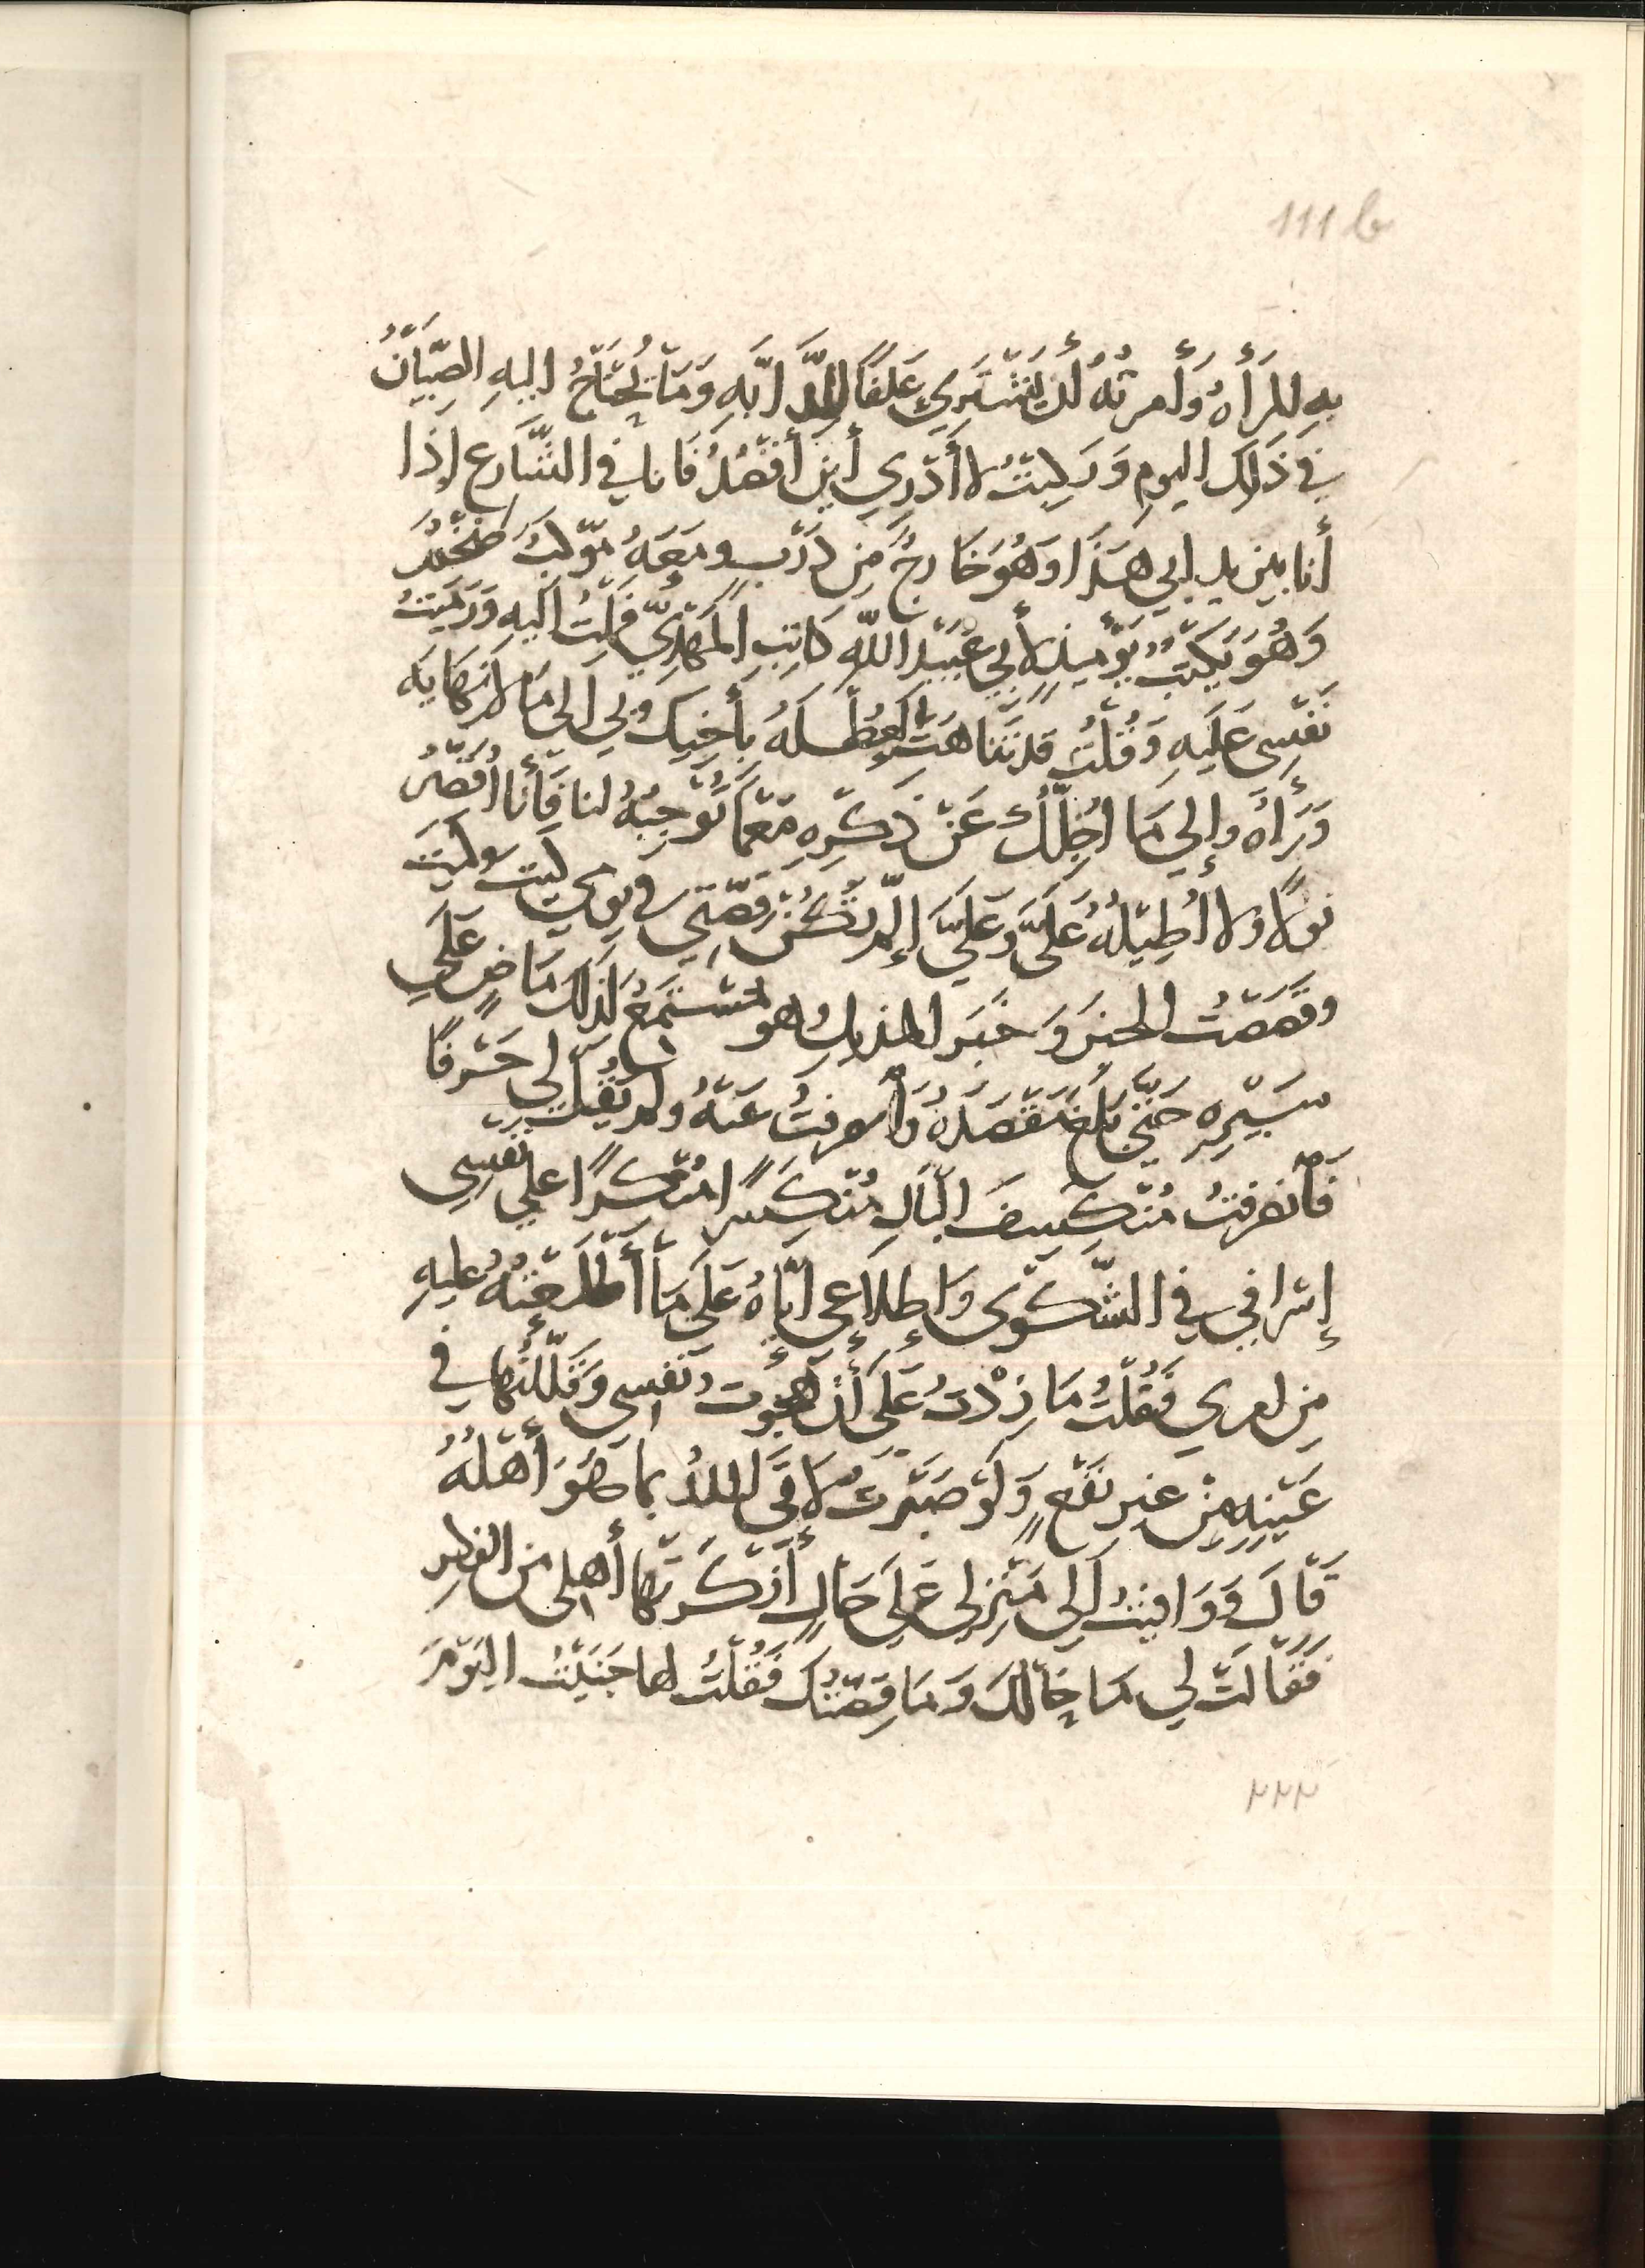 111b
بِهِ لِلمَرأَهِ وَأَمرتُهُ أَن يَشتَرِيَ عَلَفًا لِلدَّابَّهِ وَمَا نَحتَاجُ اليهِ الصِّبيَانُ
فِي ذَلِكَ اليومِ وَرَكِبتُ لا أَدرِي أَينَ أَقصُدُ فَانا في الشَّارع اِذَا
أنا بين يدي ابي هَذَا وَهُوَ خَارِجٌ مِن دَربٍ ومَعَهُ مَوكِبٌ ضَخمٌ
وَهُوَ يَكتُبُ يَومَئِذٍ لأَبي عُبَيدِ اللهِ كَاتِبِ المَهدِيِّ فَمِلتُ اليهِ وَرَمَيتُ
نَفسِي عَلَيهِ وَقُلتُ قد تَنَاهَت العُطلَهُ بأَخِيكَ وبي الى مَا لا نِهَايَه
وَرَاهُ وإلي مَا اُجِلُّكَ عَن ذِكرِهِ مَعمَا تُوجِبُهُ لنا فَأَنا اُقَصِّرُ
قولًا ولا اُطِيلُهُ عَلَيكَ وَعَلَيَّ إن لَم تَكُن قِصَّتِي في يومي كيتَ وكَيتَ
وقَصَصتُ الخبرَ وَخَبَر المنديل وهو مُستَمِعٌ لِذَلكَ مَاضٍ عَلَى
سَيرِهِ حَتَّي بَلَغَ مَقصَدَهُ وَانصرفتُ عَنهُ ولم يَقُل لي حَرفًا
فَانصرفتُ مُنكَسِفَ البَالِ مُنكَسِرًا مُنكرًا علي نَفسِي
إسرافي في الشَّكوَى وَاِطلَاعِي ايَّاهُ عَلَي مَا أَطلَعتُهُ عليهِ
مِن امري فَقُلتُ مَا زِدتُ عَلَى أَن هَجَوتُ نَفسِي وَقَلَّلتُهَا في
عَينِهِ مِن غيرِ نَفعٍ وَلَو صَبَرتُ لاتَى اللهُ بما هُوَ أَهلُهُ
قَالَ وَوَافيتُ اَلي مَنزِلي عَلَي حَالٍ أَنكَرَتها أهلي من الفِكرِ
فَقَالَت لِي مَا حَالكَ وَمَا قِصَّتُكَ فَقُلتُ لها جَنَيتُ اليَومَ
٢٢٢